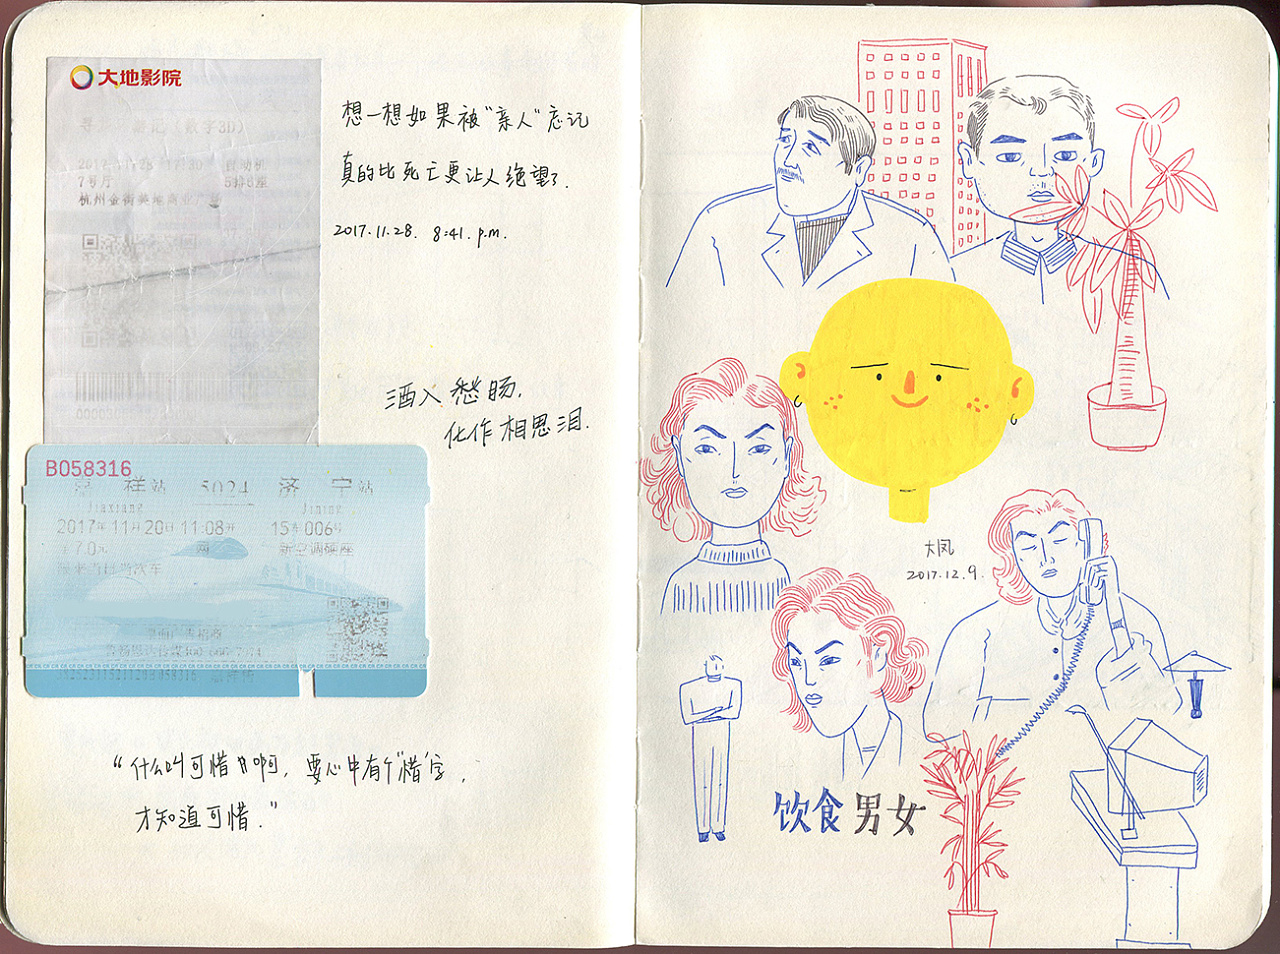 大地影院
(数字3D)
7号厅
杭州金街美地商业广场
想一想如果被“亲人”忘记
真的比死亡更让人绝望了.
2017.11.28. 8:41. p.m.
酒入愁肠,
化作相思泪.
B058316
祥站 5024 济 宁站
Jiaxiang Jining
2017年11月20日11:08开 15车006号
7.0元 网 新空调硬座
“什么叫可惜啊, 要心中有个“惜”字,
才知道可惜.”
大凤
2017.12.9.
饮食男女